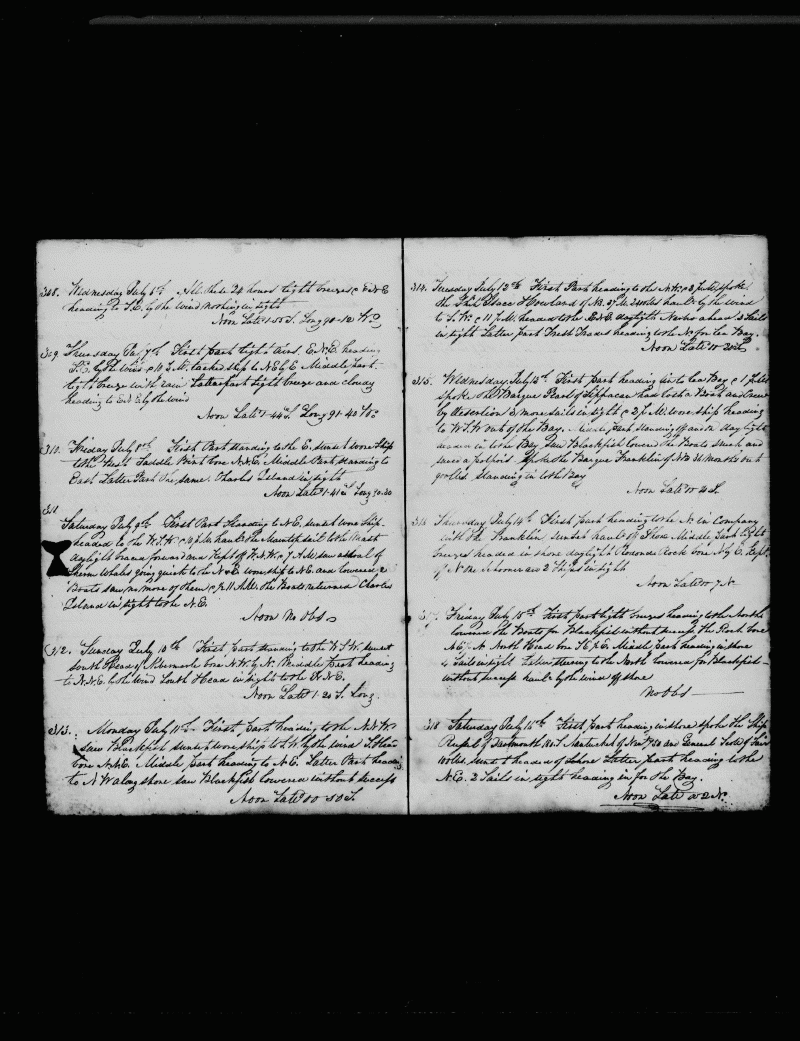 308. Wednesday July 6th All these 24 hours light breezes E.N.E
heading to S.E. by the wind nothing in sight
Noon Latd 1.55 S. Long 90-12 W.
309 Thursday July 7th First part light airs E.N.E. heading
by the wind 11 P.M. tacked ship to N.E by E Middle part
light breeze with rain Latter part light breeze and cloudy
heading to by the wind
Noon Latd 1-44 S. Long 91-40 W.
310. Friday July 8th First Part standing to the E. sunset wore Ship
to the West Saddle Point bore N.N.E. Middle Part standing to
East Latter Part the same. Charles Island in sight
Noon Latd 1-41 S Long 90.30
311
Saturday July 9th First Part standing to N.E. sunset wore Ship
headed to the W.S.W. 4 P.M. hauled the Mainsail to the Mast
daylight braced forward and Kept off W.N.W. 7 A.M. saw a shoal of
Sperm Whales going quick to the N & E wore ship to N.E. and lowered 2
Boats saw no more of them 11 A.M. the Boats returned Charles
Island in sight to the N.E.
Noon No Obs
312. Sunday July 10th First part standing to the W.S.W. sunset
South Head of Albemarle bore N.W. by N. Middle part heading
to N.N.E. by the wind South Head in sight to the N.E.
Noon Latd 1-20 S. Long.
313. Monday July 11th First part heading to the N.N.W.
saw Blackfish sunset wore ship to S.W. by the wind
bore N.N.E. Middle part heading to N.E. Latter Part heading
to N W along shore saw Blackfish lowered without success
Noon Latd 00 50 S.
314. Tuesday July 12th First Part heading to the N.W. 3 P.M. spoke
the Ship Isaac Howland of N.B. 27 M. 2400 bbls hauled by the wind
to S.W. 11 P.M. headed to the daylight ahead 3 Sails
in sight Latter part Fresh Trades heading to the N. for the Bay.
Noon Latd 00 20 S
315. Wednesday July 13th First Part heading in to the Bay 1 P.M.
spoke the Barque Pearl of Sippican had lost a Boat and crew
by desertion 3 more sails in sight 2 P.M. wore ship heading
to W.S.W. out of the Bay. Middle part standing off and on daylight
headed in to the Bay saw Blackfish lowered the Boats struck and
saved a Spoke the Barque Franklin of N.B. 36 months out
900 bbls Standing in to the Bay
Noon Latd 00 4 S.
316 Thursday July 14th First part heading to the N. in Company
with the Franklin sunset hauled off Shore Middle Part light
breezes headed in shore daylight Redondo Rock bore N by E. Kept
off N one schooner and 2 Ships in sight
Noon Latd 00 7 N
317. Friday July 15th First part light breezes heading to the North
lowered the Boats for Blackfish without success The Rock bore
N.E. North Head bore Middle Part heading in shore
4 Sails in sight Latter steering to the North lowered for Blackfish
without success hauled by the wind off shore
No Obs
318 Saturday July 16th First part heading in shore spoke the Ship
Russell of Dartmouth Nantucket of Nan and General of Fair
sunset headed off Shore Latter part heading to the
N.E. 2 Sails in sight heading in for the Bay.
Noon Latd 00 2 N.